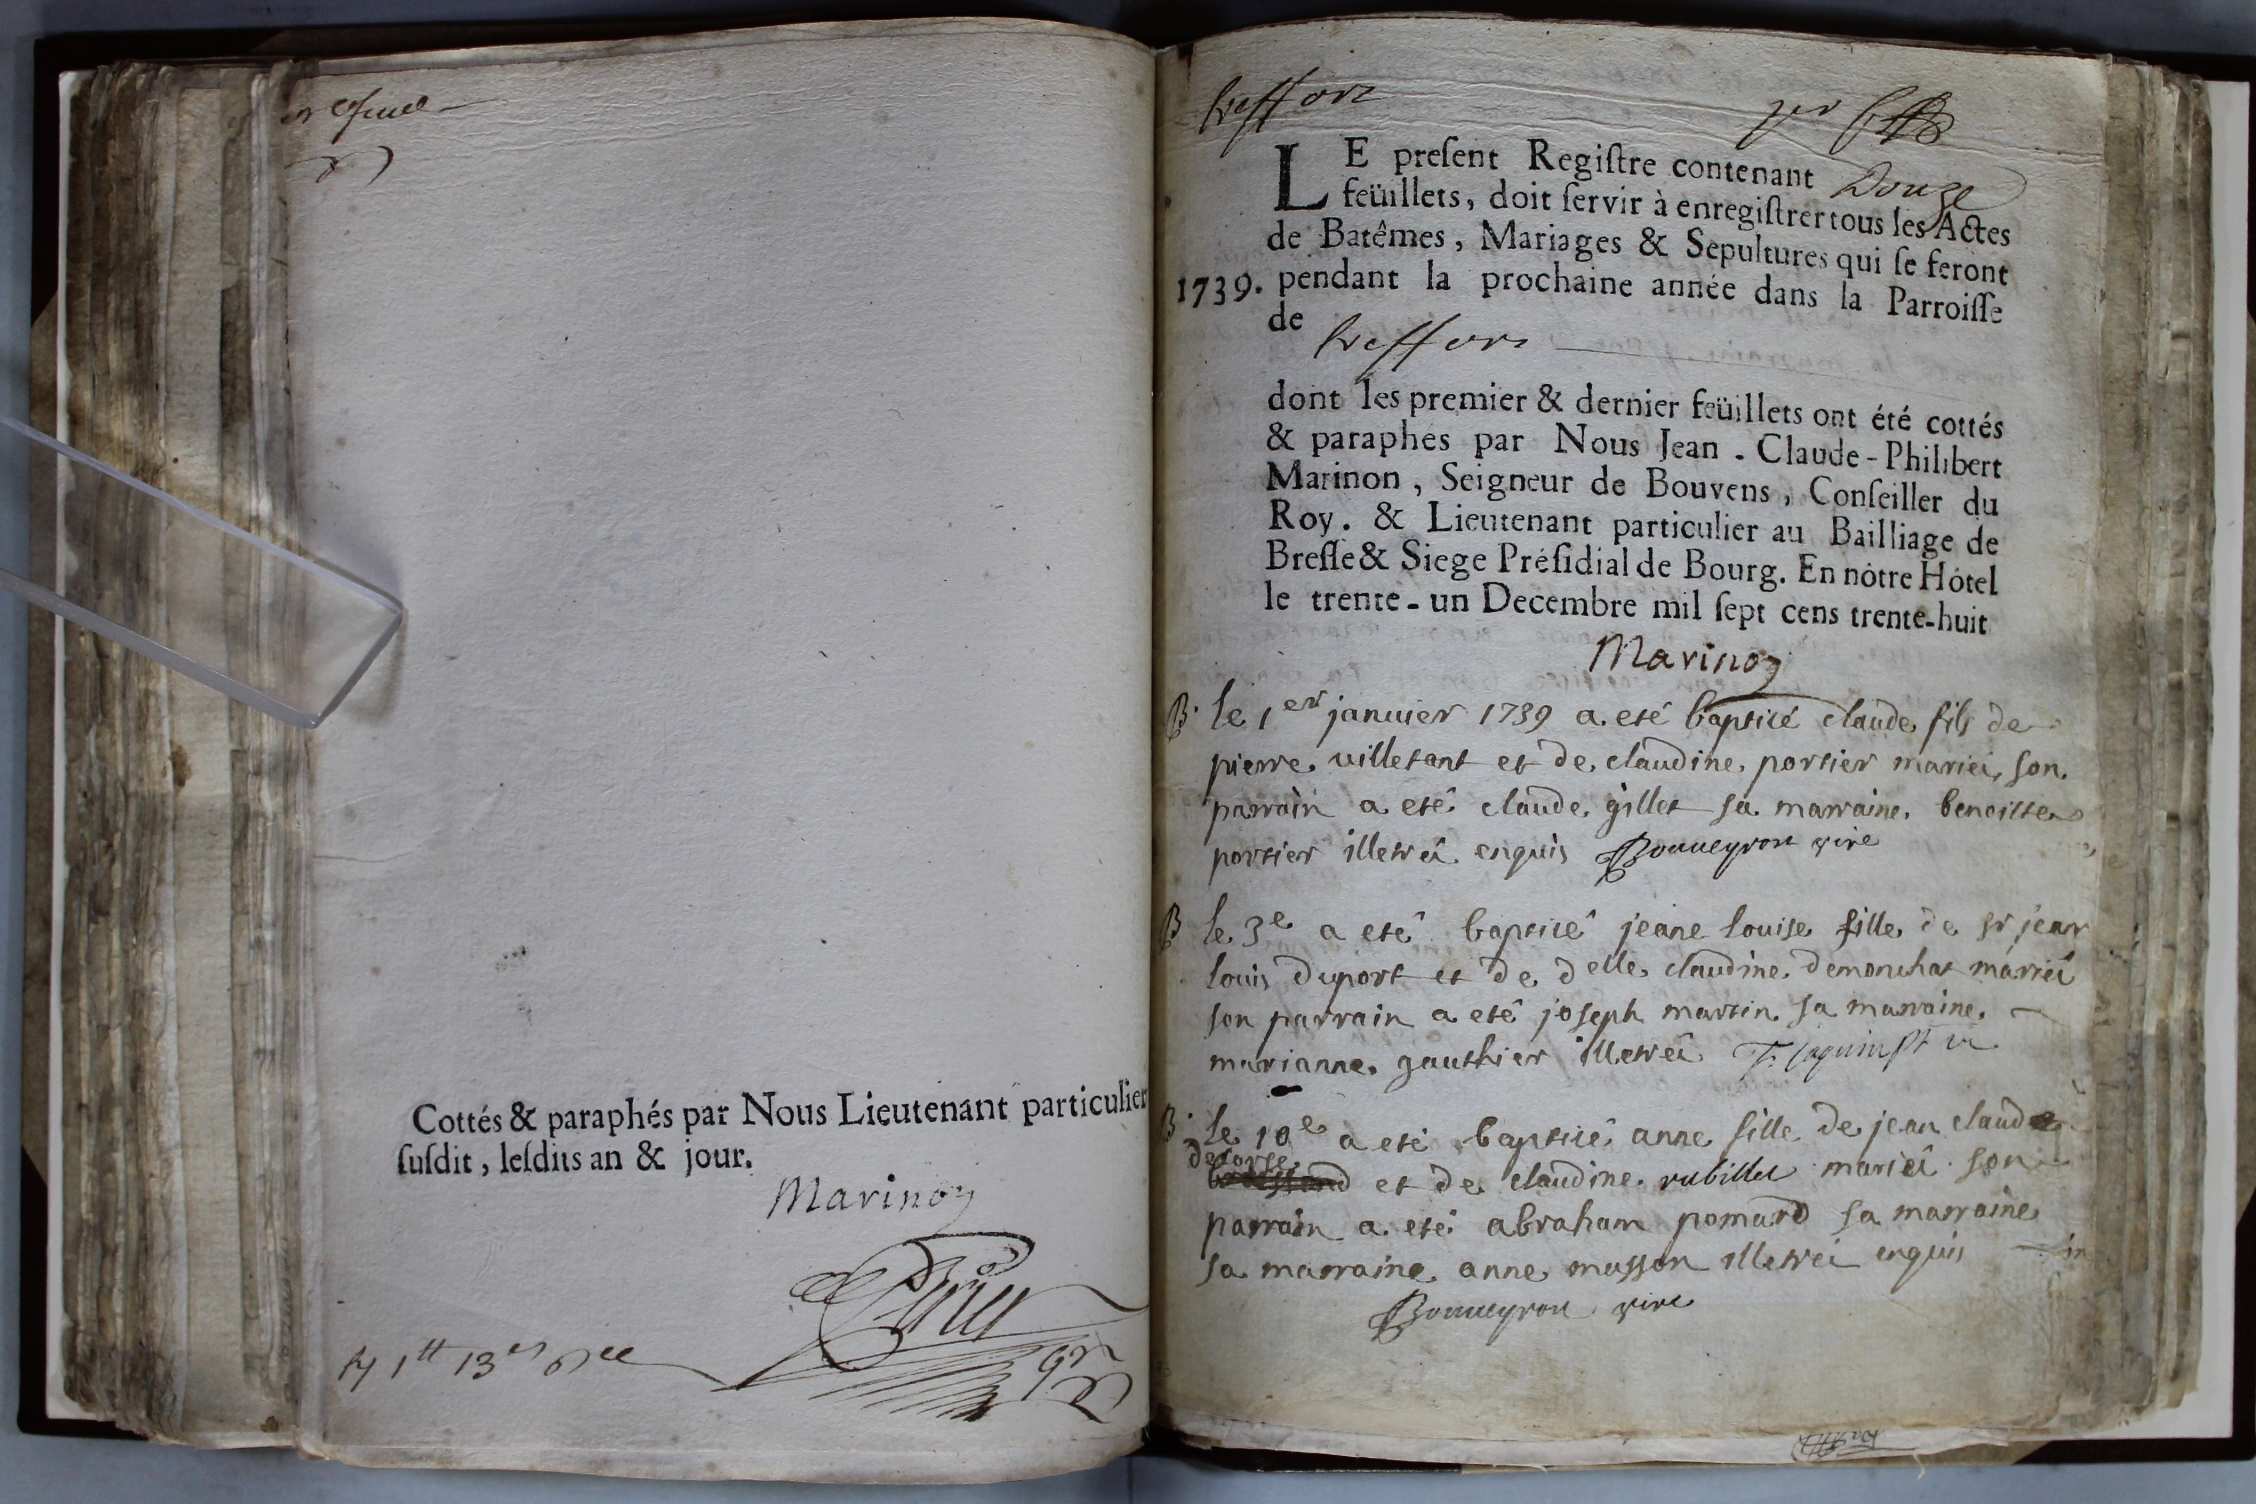 Cottés & paraphés par Nous Lieutenant particulier
suſdit, leſdits an & jour.
Marinon
1tt 13s
treffort
LE preſent Regiſtre contenant Douze
feüillets, doit ſervir à enregiſtrer tous les Actes
de Batêmes, Mariages & Sepultures qui ſe feront
1739. pendant la prochaine année dans la Parroiſſe
de treffort
dont les premier & dernier feüillets ont été cottés
& paraphés par Nous Jean-Claude-Philibert
Marinon, Seigneur de Bouvens, Conſeiller du
Roy. & Lieutenant particulier au Bailliage de
Breſſe & Siege Préſidial de Bourg. En nôtre Hôtel
le trente-un Decembre mil ſept cens trente-huit
Marinon
B. le 1er janvier 1739 a eté baptisé claude fils de
pierre villetant et de claudine portier mariéz son
parrain a eté claude gillet sa marraine benoitte
portier illetréz enquis Bonneyron vire
B le 3e a eté baptisé jeane louise fille de sr jean
louis duport et de delle claudine demonchat mariéz
son parrain a eté joseph martin sa marraine
marianne gauthier illetréz
B. le 10e a eté baptisé anne fille de jean claude
decorse
et de claudine rubillet mariéz son
parrain a eté abraham pomard sa marraine
sa marraine anne musson illetréz enquis
Bonneyron vire